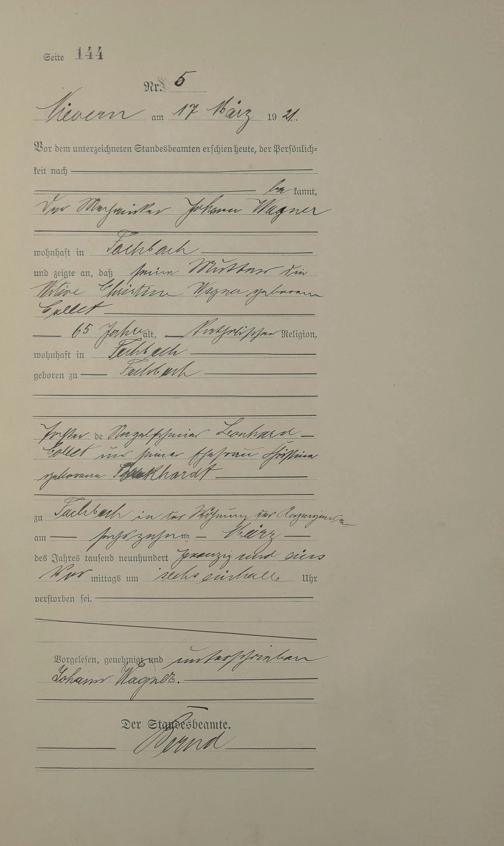 Seite 144
Nr. 5
Nievern am 17 März 1921.
Vor dem unterzeichneten Standesbeamten erschien heute, der Persönlich-
keit nach
be kannt,
der Mechaniker Johann Wagner
wohnhaft in Fachbach
und zeigte an, daß seine Mutter die
Witwe Christina Wagner geborene
Collet
65 Jahre alt, katholischer Religion,
wohnhaft in Fachbach
geboren zu Fachbach
Tochter de Nagelschmied Leonhard
Collet und seiner Ehefrau Christina
geborene Burkhardt
zu Fachbach in der Wohnung des Anzeigenden
am sechszehnten März
des Jahres tausend neunhundert zwanzig und eins
Vor mittags um sechs einhalb Uhr
verstorben sei.
Vorgelesen, genehmigt und unterschrieben
Johann Wagner.
Der Standesbeamte.